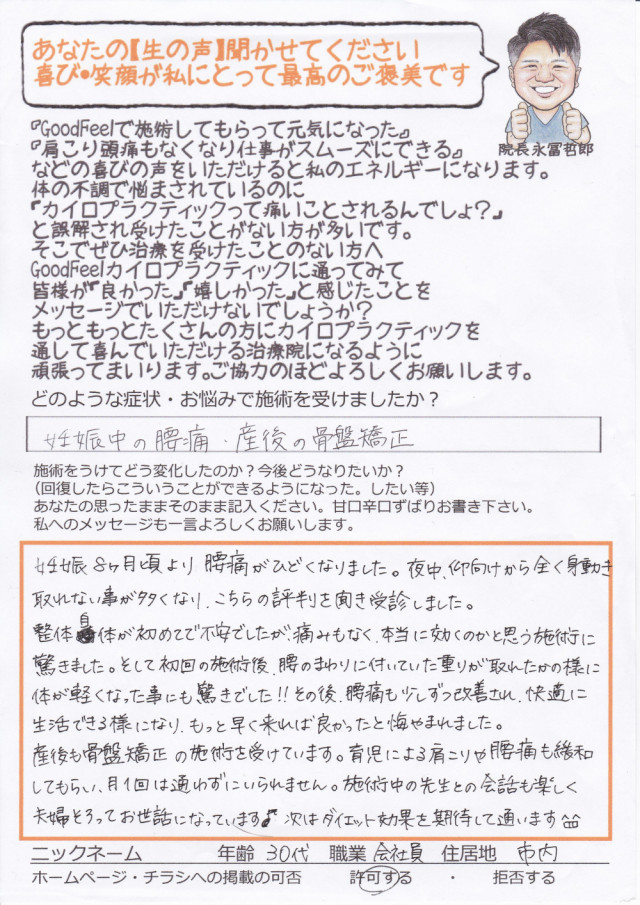 あなたの【生の声】聞かせてください
喜び・笑顔が私にとって最高のご褒美です
院長 永冨哲郎
『GoodFeelで施術してもらって元気になった』
『肩こり頭痛もなくなり仕事がスムーズにできる』
などの喜びの声をいただけると私のエネルギーになります。
体の不調で悩まされているのに
「カイロプラクティックって痛いことされるんでしょ?」
と誤解され受けたことがない方が多いです。
そこでぜひ治療を受けたことのない方へ
GoodFeelカイロプラクティックに通ってみて
皆様が「良かった」「嬉しかった」と感じたことを
メッセージでいただけないでしょうか?
もっともっとたくさんの方にカイロプラクティックを
通して喜んでいただける治療院になるように
頑張ってまいります。ご協力のほどよろしくお願いします。
どのような症状・お悩みで施術を受けましたか?
妊娠中の腰痛・産後の骨盤矯正
施術をうけてどう変化したのか?今後どうなりたいか?
(回復したらこういうことができるようになった。したい等)
あなたの思ったままそのまま記入ください。甘口辛口ずばりお書き下さい。
私へのメッセージも一言よろしくお願いします。
妊娠8ヶ月頃より腰痛がひどくなりました。夜中、仰向けから全く身動き
取れない事が多くなり、こちらの評判を聞き受診しました。
整体自体が初めてで不安でしたが、痛みもなく、本当に効くのかと思う施術に
驚きました。そして初回の施術後、腰のまわりに付いていた重りが取れたかの様に
体が軽くなった事にも驚きでした!!その後、腰痛も少しずつ改善され、快適に
生活できる様になり、もっと早く来れば良かったと悔やまれました。
産後も骨盤矯正の施術を受けています。育児による肩こりや腰痛も緩和
してもらい、月1回は通わずにいられません。施術中の先生との会話も楽しく
夫婦そろってお世話になっています♪ 次はダイエット効果を期待して通います
ニックネーム 年齢 30代 職業 会社員 住居地 市内
ホームページ・チラシへの掲載の可否 許可する ・ 拒否する